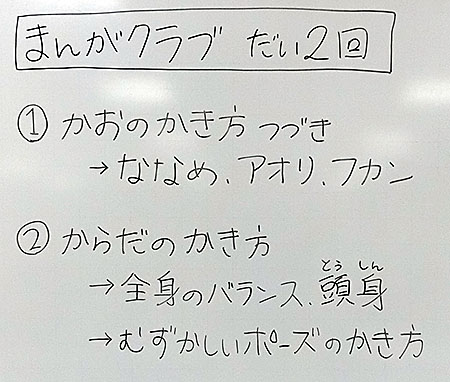 まんがクラブ だい2回
① かおのかき方 つづき
→ななめ、アオリ、フカン
② からだのかき方
とう しん
→全身のバランス、頭身
→むずかしいポーズのかき方